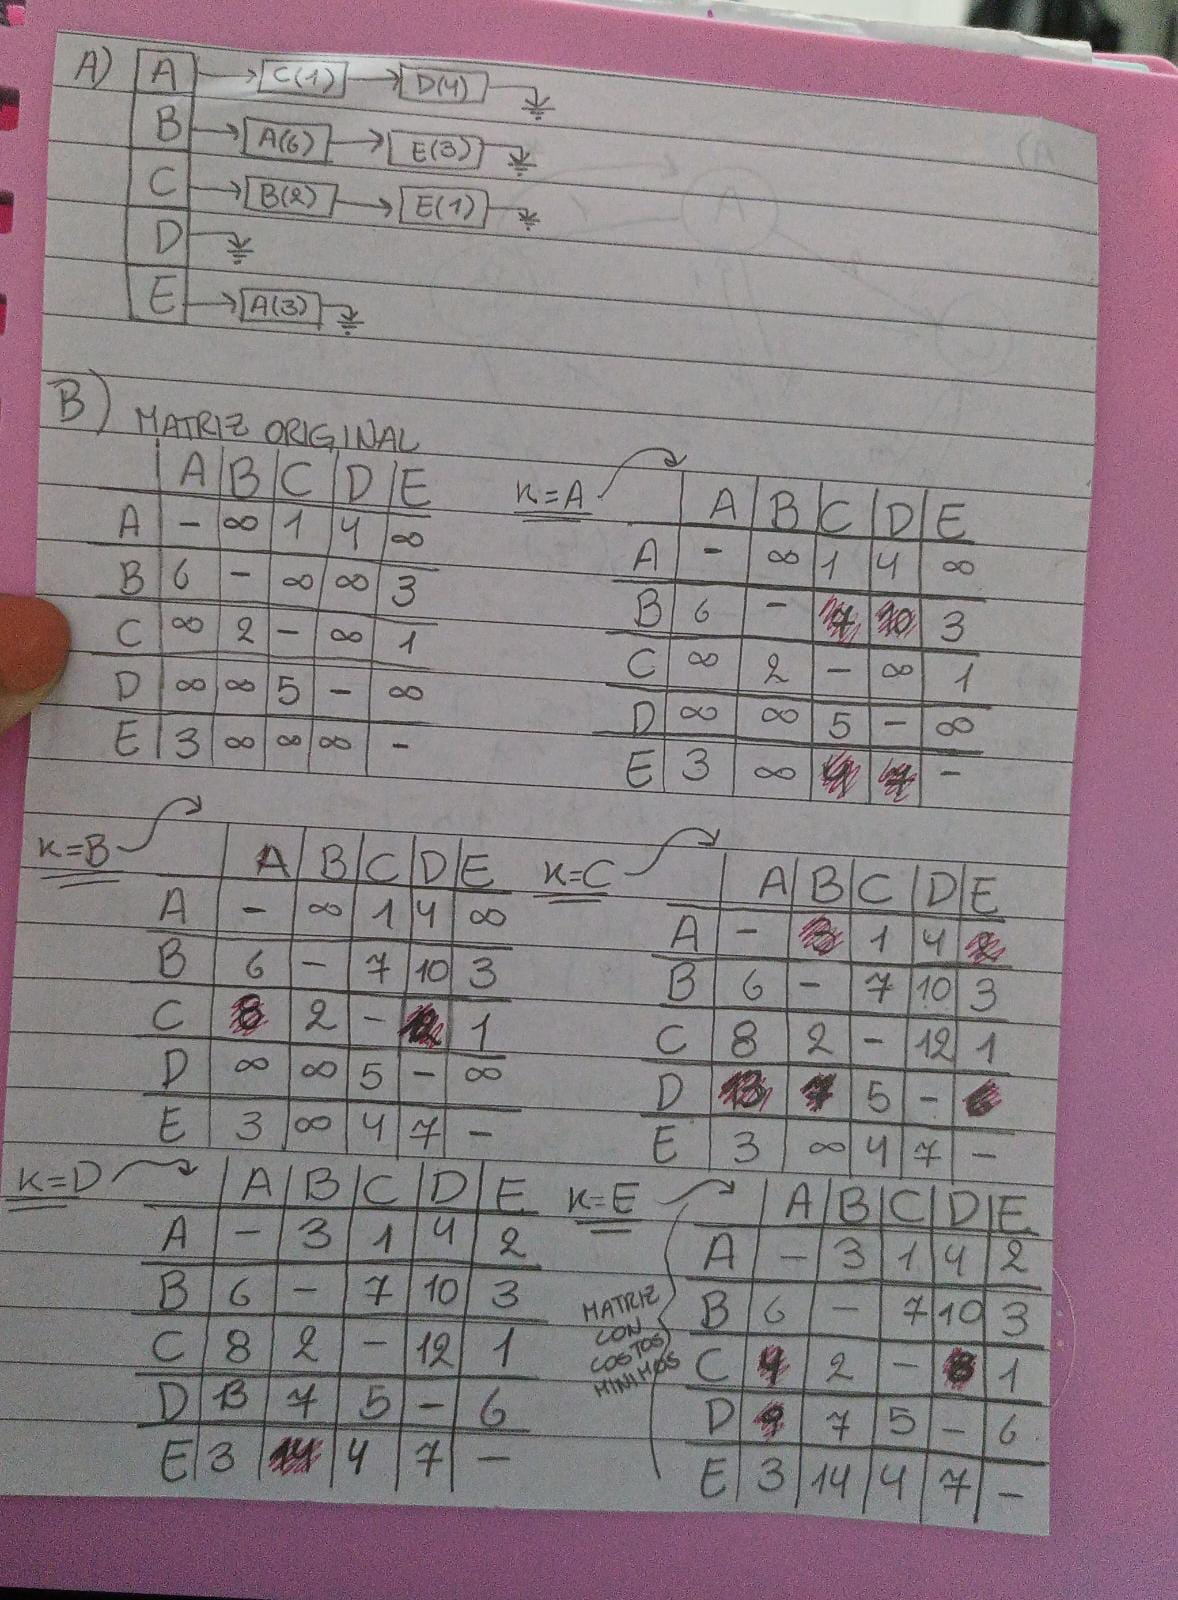 A) A → C(1) → D(4)
B → A(6) → E(3)
C → B(2) → E(1)
D
E → A(3)
B) MATRIZ ORIGINAL
A B C D E
A - ∞ 1 4 ∞
B 6 - ∞ ∞ 3
C ∞ 2 - ∞ 1
D ∞ ∞ 5 - ∞
E 3 ∞ ∞ ∞ -
K=A
A B C D E
A - ∞ 1 4 ∞
B 6 - 7 10 3
C ∞ 2 - ∞ 1
D ∞ ∞ 5 - ∞
E 3 ∞ 4 7 -
K=B
A B C D E
A - ∞ 1 4 ∞
B 6 - 7 10 3
C 8 2 - 12 1
D ∞ ∞ 5 - ∞
E 3 ∞ 4 7 -
K=C
A B C D E
A - 3 1 4 2
B 6 - 7 10 3
C 8 2 - 12 1
D 13 7 5 - 6
E 3 ∞ 4 7 -
K=D
A B C D E
A - 3 1 4 2
B 6 - 7 10 3
C 8 2 - 12 1
D 13 7 5 - 6
E 3 14 4 7 -
K=E
MATRIZ
CON
COSTOS
MINIMOS
A B C D E
A - 3 1 4 2
B 6 - 7 10 3
C 4 2 - 8 1
D 9 7 5 - 6
E 3 14 4 7 -